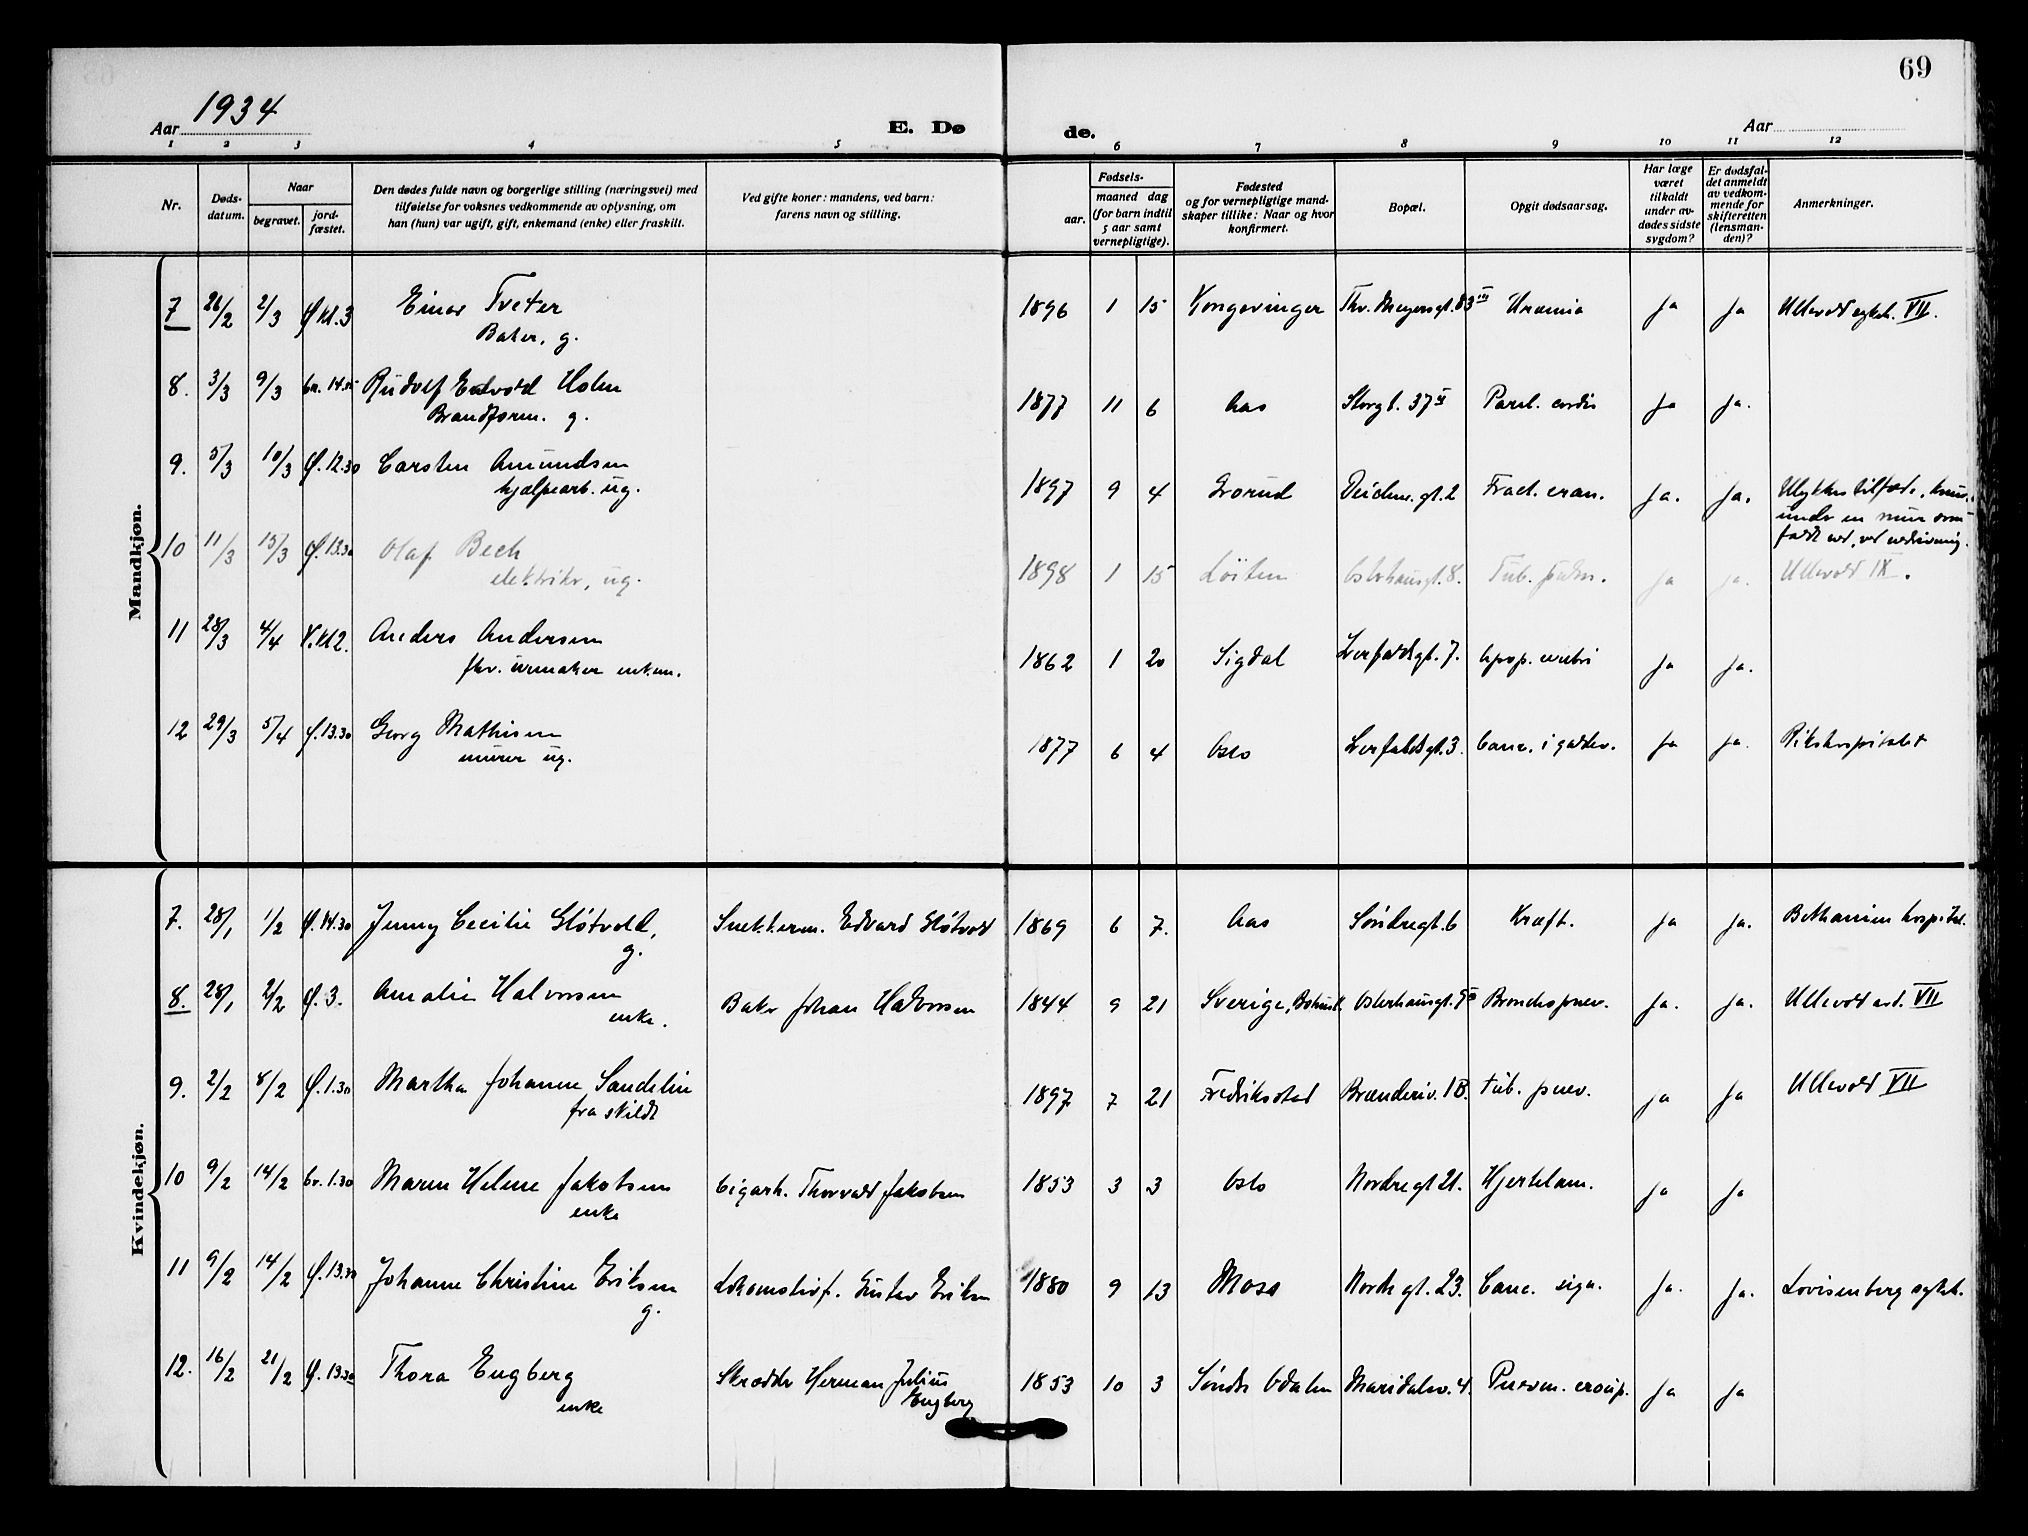 69
Aar 1934
E. Dø
de.
Aar
1 2 3 4 5 6 7 8 9 10 11 12
Nr.
Døds-
datum.
Naar
begravet.
jord-
fæstet.
Den dødes fulde navn og borgerlige stilling (næringsvei) med
tilføielse for voksnes vedkommende av oplysning, om
han (hun) var ugift, gift, enkemand (enke) eller fraskilt.
Ved gifte koner: mandens, ved barn:
farens navn og stilling.
Fødsels-
aar.
maaned dag
(for barn indtil
5 aar samt
vernepligtige).
Fødested
og for vernepligtige mand-
skaper tillike: Naar og hvor
konfirmert.
Bopæl.
Opgit dødsaarsag.
Har læge
været
tilkaldt
under av-
dødes sidste
sygdom?
Er dødsfal-
det anmeldt
av vedkom-
mende for
skifteretten
(lensman-
den)?
Anmerkninger.
Mandkjøn.
7 26/2 2/3 kl. 3 Einar Tveter 1896 1 15 Kongsvinger Thv. Meyersgt. 83 III Uræmia ja ja Ullevål sykeh. VII.
Baker, g.
8. 3/3 9/3 14.15 Rudolf Edvard Holm 1877 11 6 Aas Storgt. 37 Paral. cordis ja ja.
Brandform. g.
9. 5/3 10/3 12.30 Carsten Amundsen 1897 9 4 Grorud Deichm. gt. 2 Fract. cran. ja. ja. Ulykkestilfælde,
hjælpearb. ug. under en mur som
faldt ned, ved
10 11/3 15/3 13.30 Olaf Bech 1898 1 15 Löiten Osterhausgt. 8. Tub. pulm. ja ja. Ullevål IX.
elektriker, ug.
11 28/3 4/4 kl 2. Anders Andersen 1862 1 20 Sigdal Lerfaldsgt. 7. Apop. cerebri ja ja.
fhv. urmaker enkem.
12 29/3 5/4 13.30 Georg Mathisen 1877 6 4 Oslo Lerfaldsgt. 3. Canc. ja ja. Rikshospitalet
murer ug.
Kvindekjøn.
7. 28/1 1/2 14.30 Jenny Cecilie Sløtvold, Snekkerm. Edvard Sløtvold 1869 6 7. Aas Søndregt. 6 Kræft. ja ja. Bethanien hospital.
g.
8. 28/1 2/2 3. Amalie Halvorsen Baker Johan Halvorsen 1844 9 21 Sverige, Osterhausgt. 9 Bronchopnev. ja. ja. Ullevål avd. VII
enke.
9. 2/2 8/2 1.30 Martha Johanne Sandelin 1897 7 21 Fredriksstad Brænneriv. 1B. tub. pnev. ja ja Ullevål VII
fraskildt
10 9/2 14/2 1.30 Maren Helene Jakobsen Cigarh. Thorvald Jakobsen 1853 3 3 Oslo Nordregt 21. Hjertelam. ja ja
enke
11 9/2 14/2 13.30 Johanne Christine Eriksen Lokomotivf. Gustav Eriksen 1880 9 13 Moss Nordr gt. 23. Canc. sigm. ja. ja. Lovisenberg sykeh.
g.
12. 16/2 21/2 13.30 Thora Engberg Skrædder Herman Julius 1853 10 3 Søndre Odalen Maridalsv. 4. Pnevm. croup. ja ja
enke Engberg